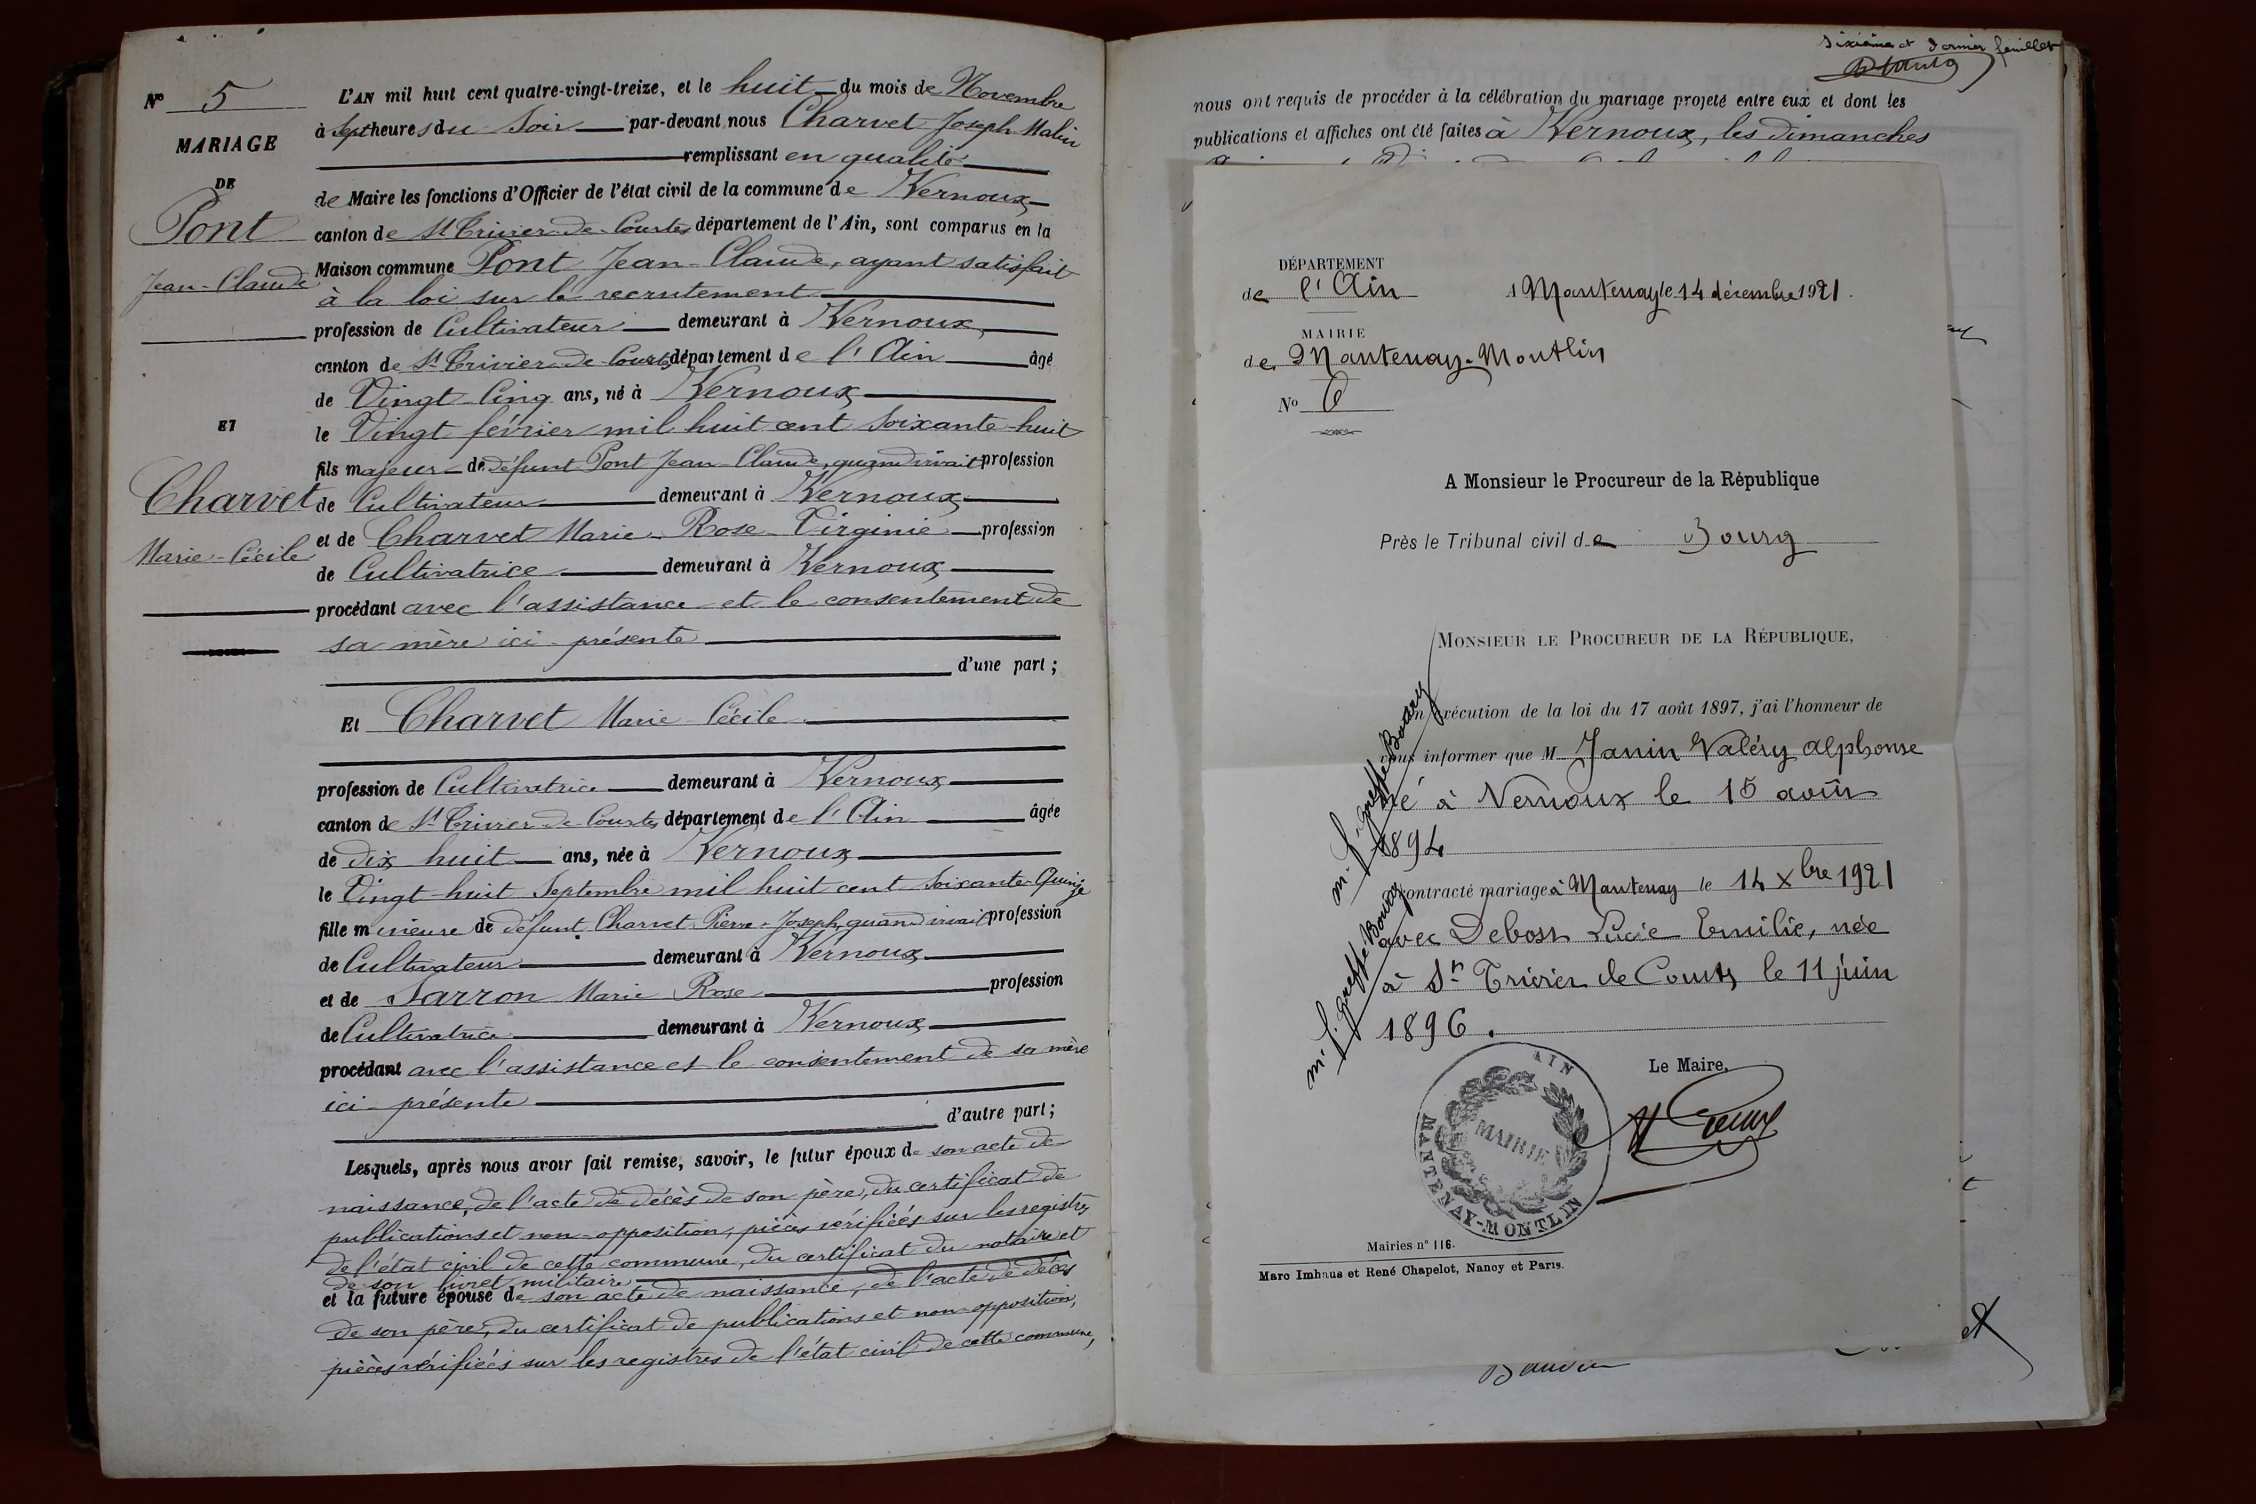 Nº 5
MARIAGE
DE
Pont
Jean-Claude
ET
Charvet
Marie-Cécile
L'AN mil huit cent quatre-vingt-treize, et le huit du mois de Novembre
à Sept heures du Soir par-devant nous Charvet Joseph Malin
remplissant en qualité
de Maire les fonctions d'Officier de l'état civil de la commune de Vernoux
canton de St Trivier-de-Courtes département de l'Ain, sont comparus en la
Maison commune Pont Jean-Claude, ayant satisfait
à la loi sur le recrutement
profession de Cultivateur demeurant à Vernoux
canton de St Trivier-de-Courtes département de l'Ain âgé
de Vingt-Cinq ans, né à Vernoux
le Vingt février mil huit cent soixante-huit
fils majeur de défunt Pont Jean-Claude, quand vivait profession
de Cultivateur demeurant à Vernoux
et de Charvet Marie-Rose-Virginie profession
de Cultivatrice demeurant à Vernoux
procédant avec l'assistance et le consentement de
sa mère ici-présente
d'une part ;
Et Charvet Marie-Cécile
profession de Cultivatrice demeurant à Vernoux
canton de St Trivier-de-Courtes département de l'Ain âgée
de dix huit ans, née à Vernoux
le Vingt-huit Septembre mil huit cent soixante-Quinze
fille mineure de défunt Charvet Pierre-Joseph, quand vivait profession
de Cultivateur demeurant à Vernoux
et de Sarron Marie Rose profession
de Cultivatrice demeurant à Vernoux
procédant avec l'assistance et le consentement de sa mère
ici-présente
d'autre part ;
Lesquels, après nous avoir fait remise, savoir, le futur époux de son acte de
naissance, de l'acte de décès de son père, du certificat de
publications et non-opposition, pièces vérifiées sur les registres
de l'état civil de cette commune, du certificat du notaire et
de son livret militaire
et la future épouse de son acte de naissance, de l'acte de décès
de son père, du certificat de publications et non-opposition,
pièces vérifiées sur les registres de l'état civil de cette commune,
Sixième et dernier feuillet
nous ont requis de procéder à la célébration du mariage projeté entre eux et dont les
publications et affiches ont été faites à Vernoux, les dimanches
DÉPARTEMENT
de l'Ain
A Mantenay le 14 décembre 1921.
MAIRIE
de Mantenay-Montlin
Nº 6
A Monsieur le Procureur de la République
Près le Tribunal civil de Bourg
MONSIEUR LE PROCUREUR DE LA RÉPUBLIQUE,
En exécution de la loi du 17 août 1897, j'ai l'honneur de
vous informer que M Janin Valéry Alphonse
né à Vernoux le 15 août
1894
a contracté mariage à Mantenay le 14 Xbre 1921
avec Debost Lucie Emilie, née
à St Trivier de Courtes le 11 juin
1896.
m. f. greffe Bourg
m. f. greffe Bourg
Le Maire,
AIN
MAIRIE
MANTENAY-MONTLIN
Mairies nº 116.
Marc Imhaus et René Chapelot, Nancy et Paris.